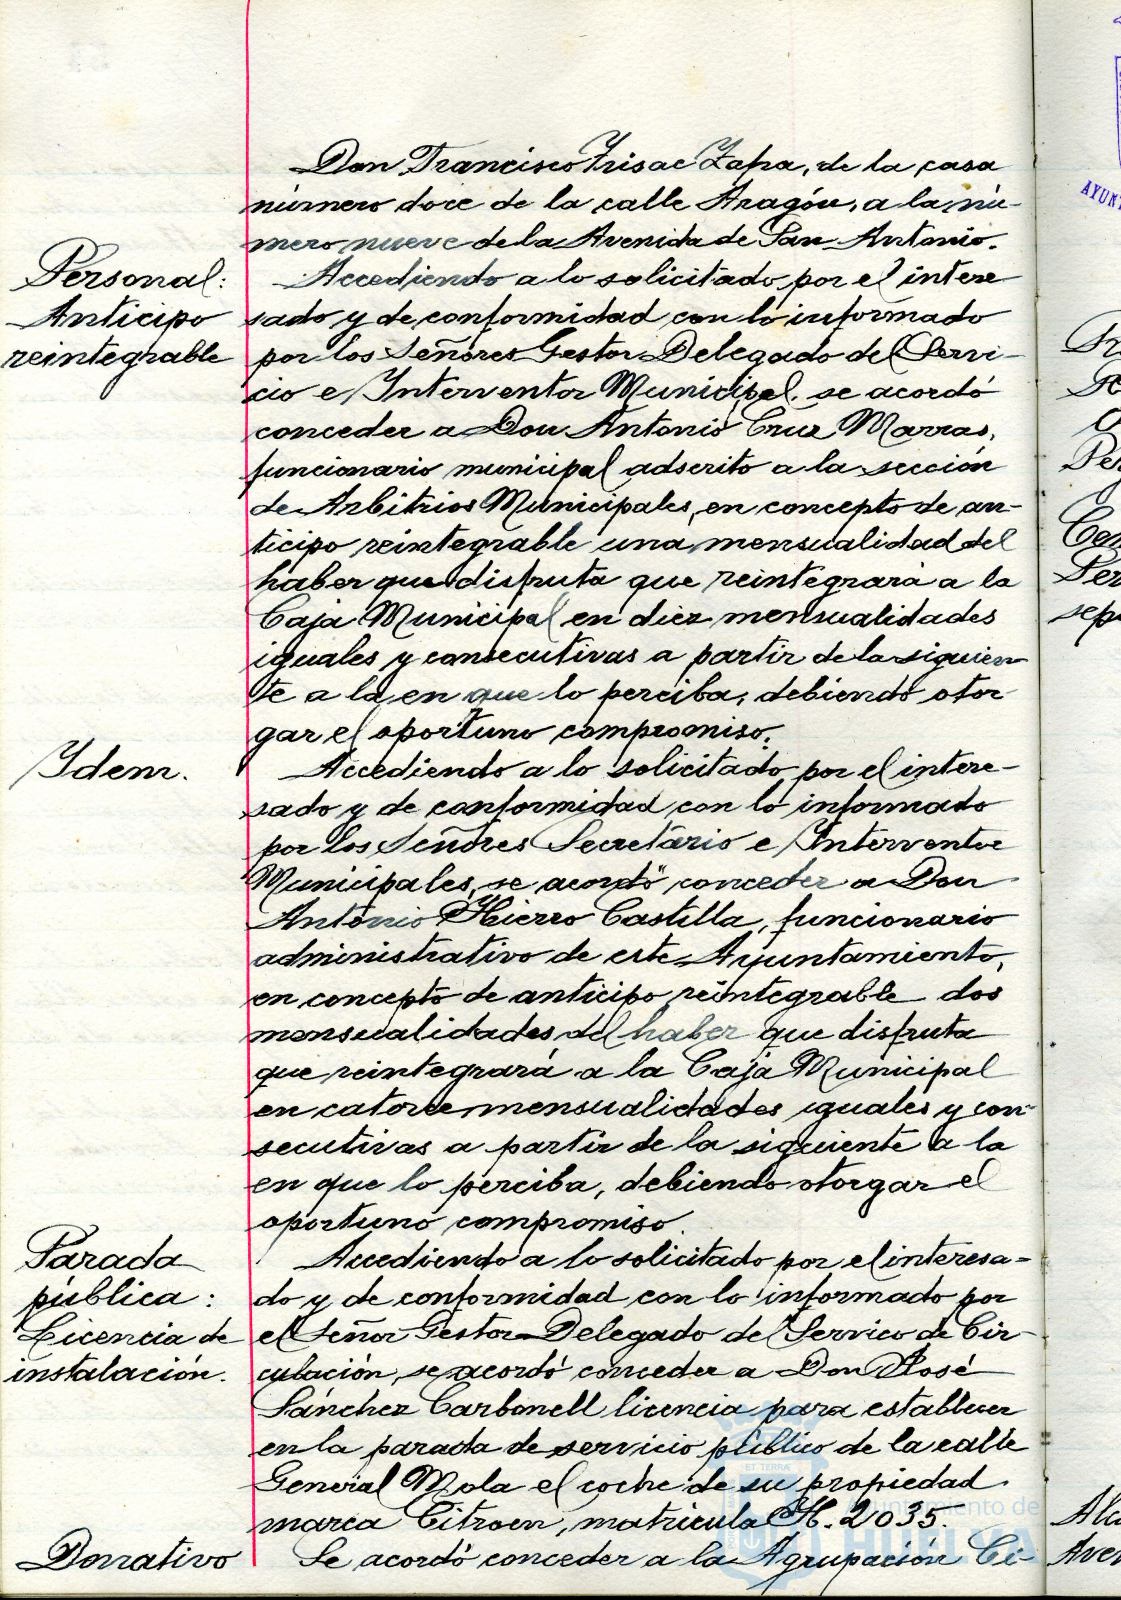 Don Francisco Frisac Zapa, de la casa
número doce de la calle Aragón, a la nú-
mero nueve de la Avenida de San Antonio.
Personal:
Anticipo
reintegrable
Accediendo a lo solicitado por el intere
sado y de conformidad con lo informado
por los Señores Gestor Delegado del Servi-
cio e Interventor Municipal, se acordó
conceder a Don Antonio Cruz Marras,
funcionario municipal adscrito a la sección
de Arbitrios Municipales, en concepto de an-
ticipo reintegrable una mensualidad del
haber que disfruta que reintegrará a la
Caja Municipal en diez mensualidades
iguales y consecutivas a partir de la siguien
te a la en que lo perciba, debiendo otor
gar el oportuno compromiso.
Idem.
Accediendo a lo solicitado por el intere-
sado y de conformidad con lo informado
por los Señores Secretario e Interventor
Municipales, se acordó conceder a Don
Antonio Hierro Castilla, funcionario
administrativo de este Ayuntamiento,
en concepto de anticipo reintegrable dos
mensualidades del haber que disfruta
que reintegrará a la Caja Municipal
en catorce mensualidades iguales y con-
secutivas a partir de la siguiente a la
en que lo perciba, debiendo otorgar el
oportuno compromiso.
Parada
pública:
Licencia de
instalación.
Accediendo a lo solicitado por el interesa-
do y de conformidad con lo informado por
el Señor Gestor Delegado del Servico de Cir-
culación, se acordó conceder a Don José
Sánchez Carbonell licencia para establecer
en la parada de servicio público de la calle
General Mola el coche de su propiedad
marca Citroen, matricula H. 2035.
Donativo
Se acordó conceder a la Agrupación Ci-
ET TERRÆ
Ayuntamiento de
HUELVA